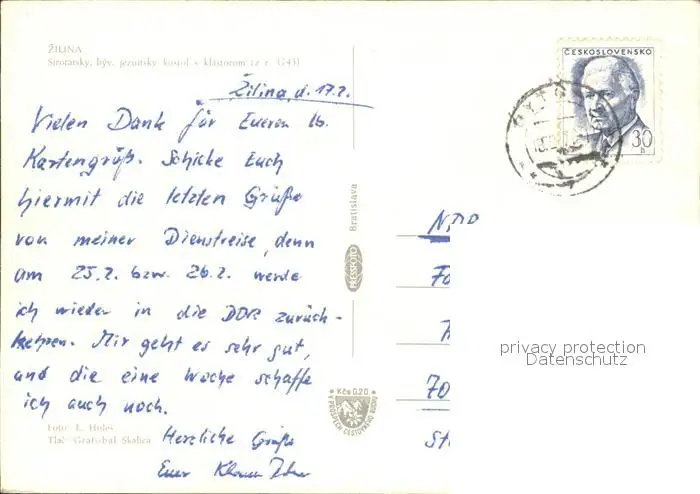 ŽILINA
Sirotársky, býv. jezuitský kostol s kláštorom (z r. 1743)
Žilina, d. 17.2.
Vielen Dank für Eueren lb.
Kartengruß. Schicke Euch
hiermit die letzten Grüße
von meiner Dienstreise, denn
am 25.2. bzw. 26.2. werde
ich wieder in die DDR zurück-
kehren. Mir geht es sehr gut,
und die eine Woche schaffe
ich auch noch.
Herzliche Grüße
Euer Klaus
Foto: L. Holeš
Tlač: Grafobal Skalica
Bratislava
PRESSFOTO
Kčs 0,20
V PROSPECH CESTOVNÉHO RUCHU
ČESKOSLOVENSKO
30 h
privacy protection
Datenschutz